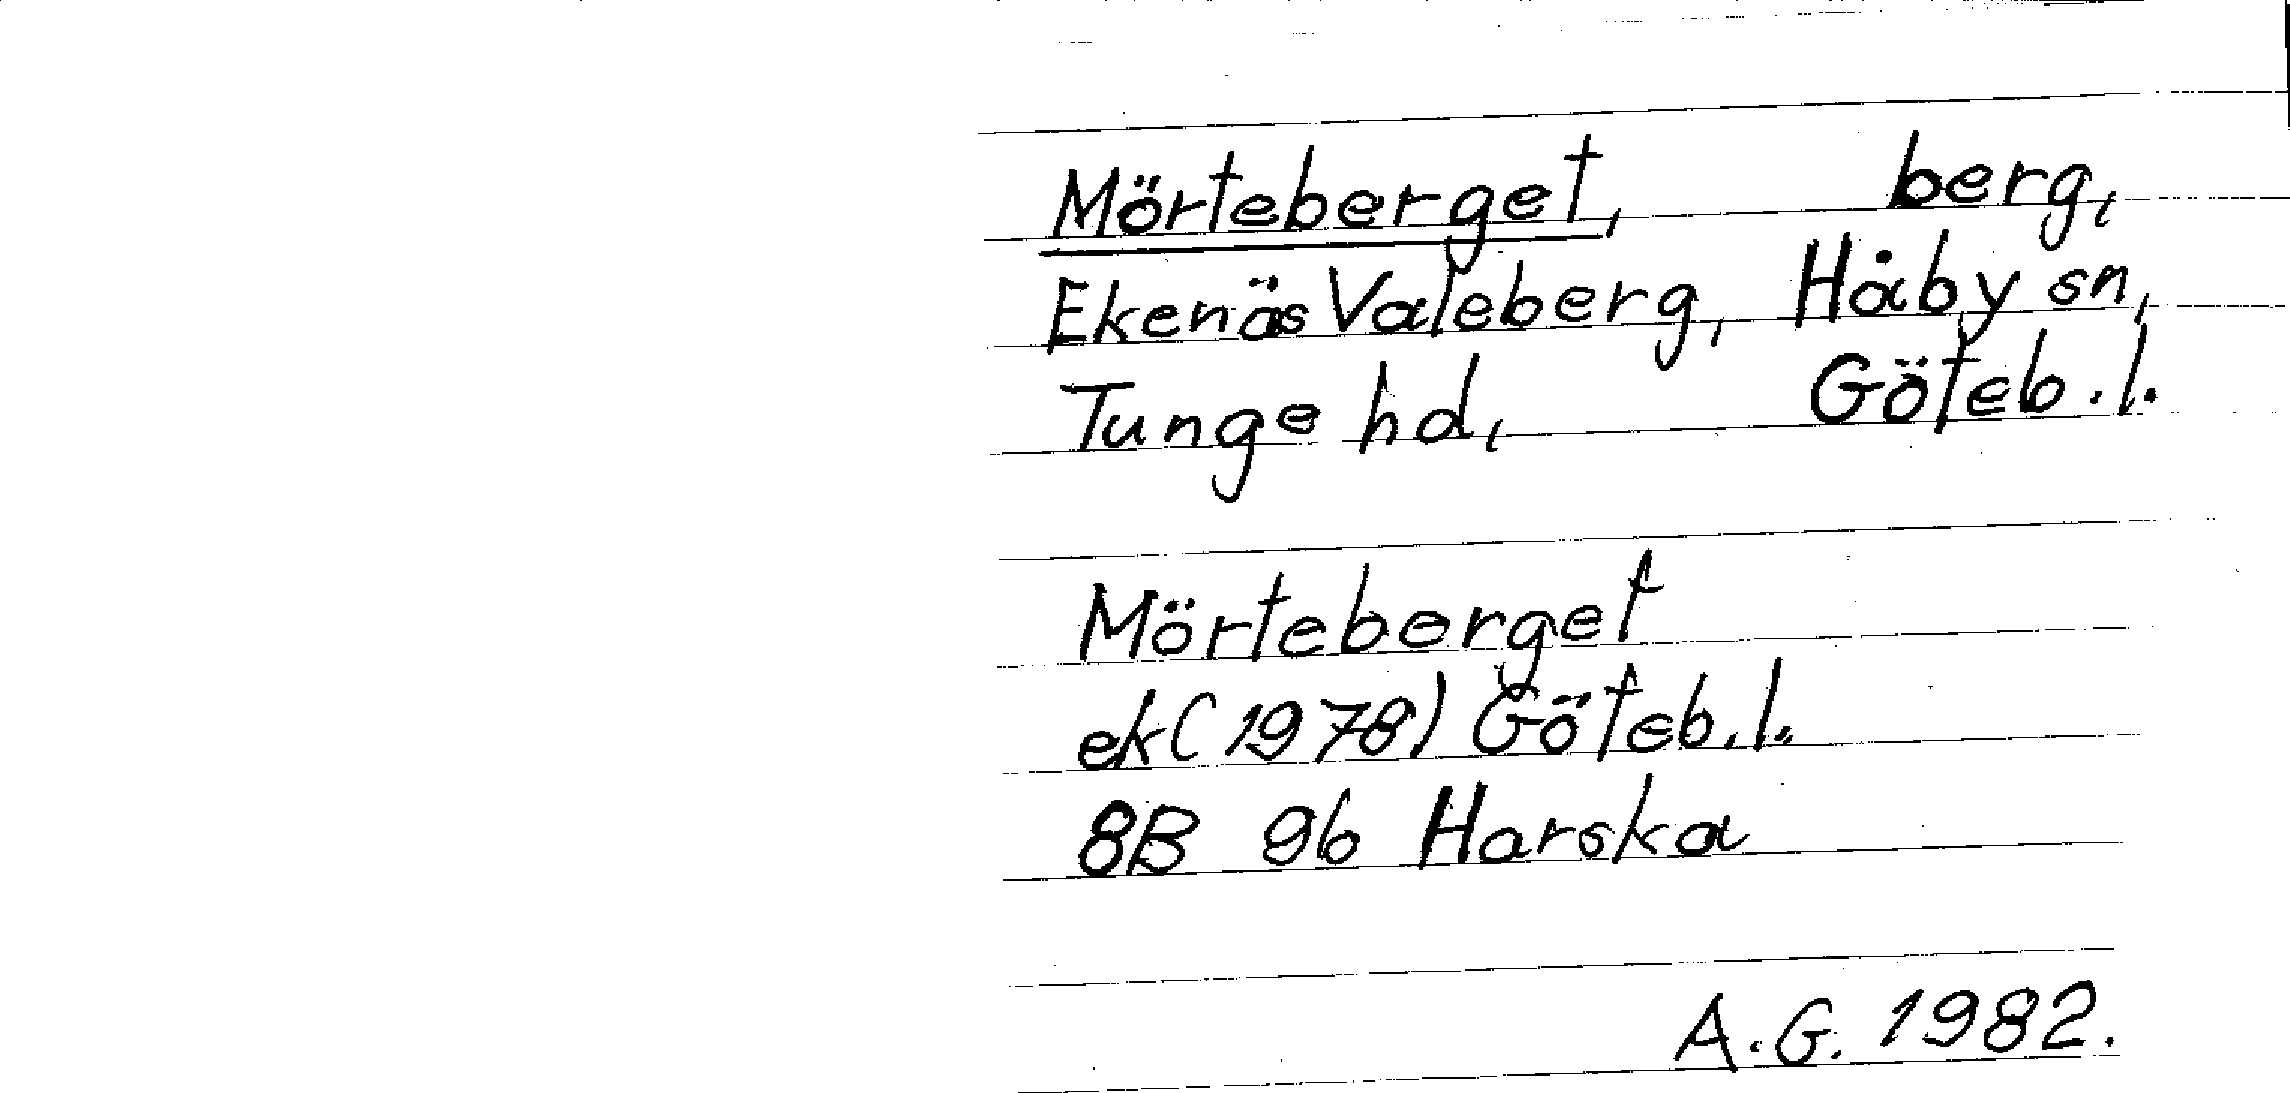 Mörteberget, berg,
Ekenäs Valeberg, Håby sn,
Tunge hd, Göteb.l.
Mörteberget
ek (1978) Göteb.l.
8B 9b Harska
A.G. 1982.